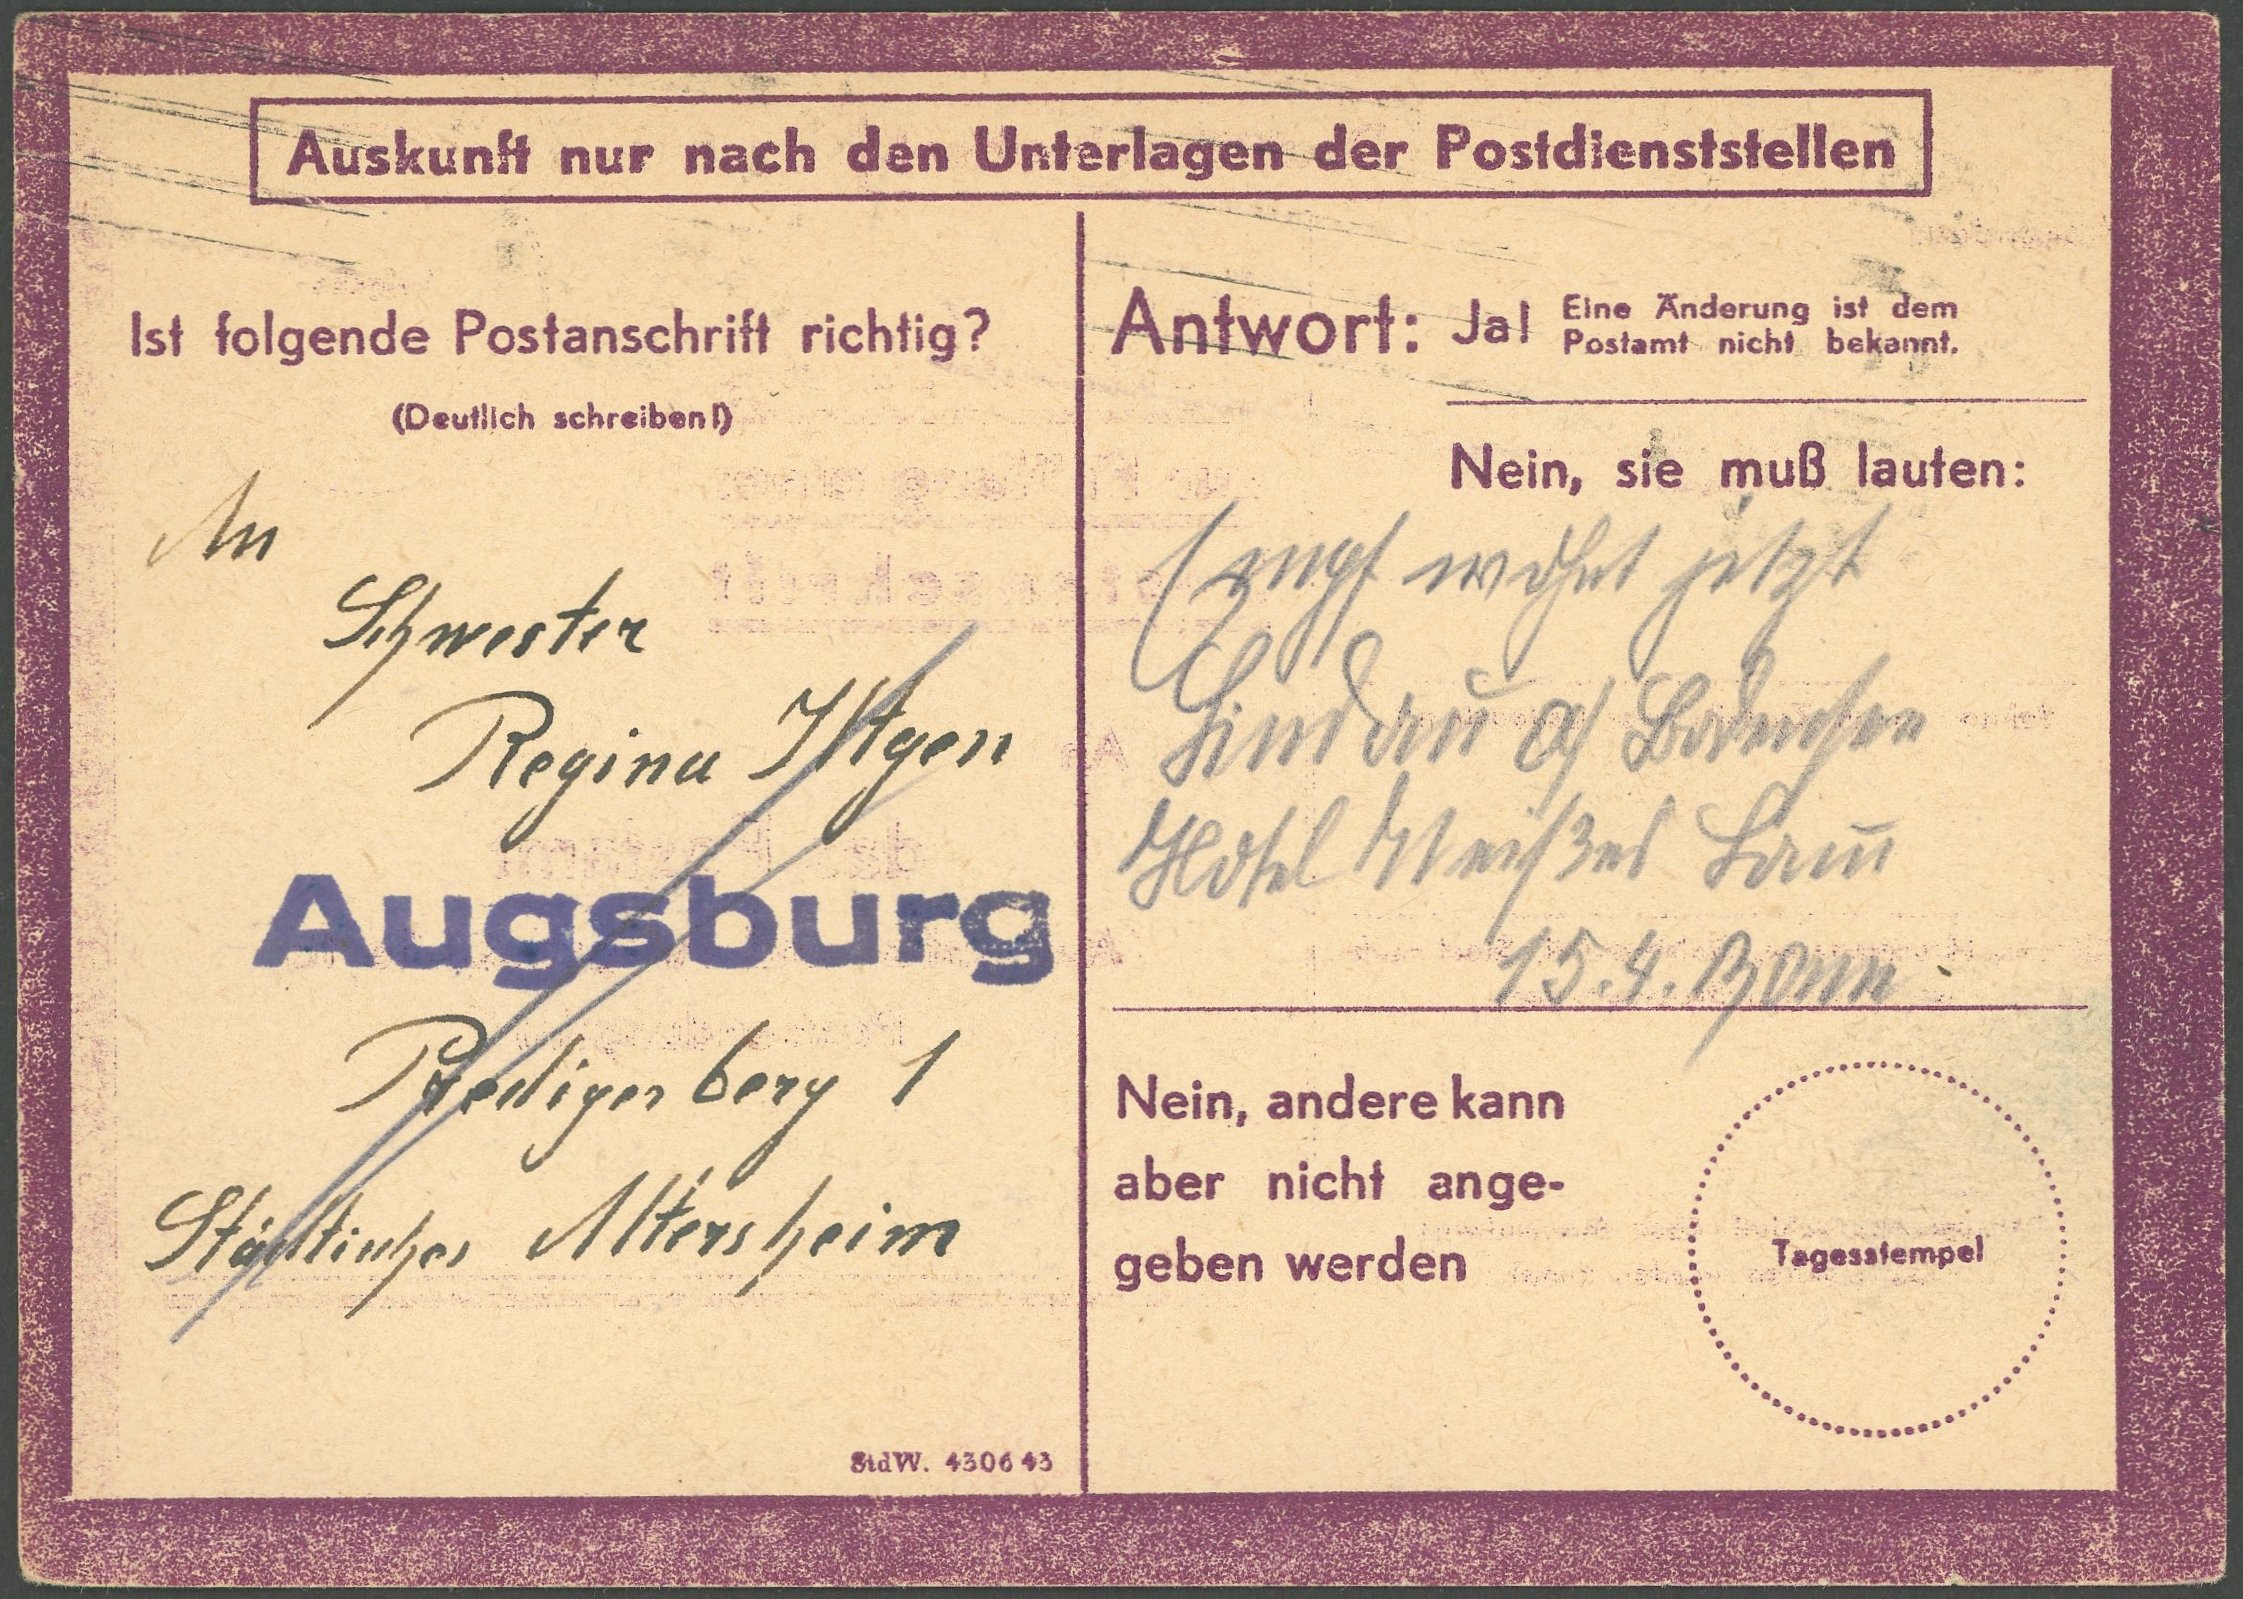 Auskunft nur nach den Unterlagen der Postdienststellen
Ist folgende Postanschrift richtig?
(Deutlich schreiben!)
An
Schwester
Regina Iltgen
Augsburg
Predigerberg 1
Städtisches Altersheim
StdW. 4306 43
Antwort: Ja! Eine Änderung ist dem
Postamt nicht bekannt.
Nein, sie muß lauten:
Empf wohnt jetzt
Lindau a/ Bodensee
Hotel Weißes
15.4.
Nein, andere kann
aber nicht ange-
geben werden
Tagesstempel